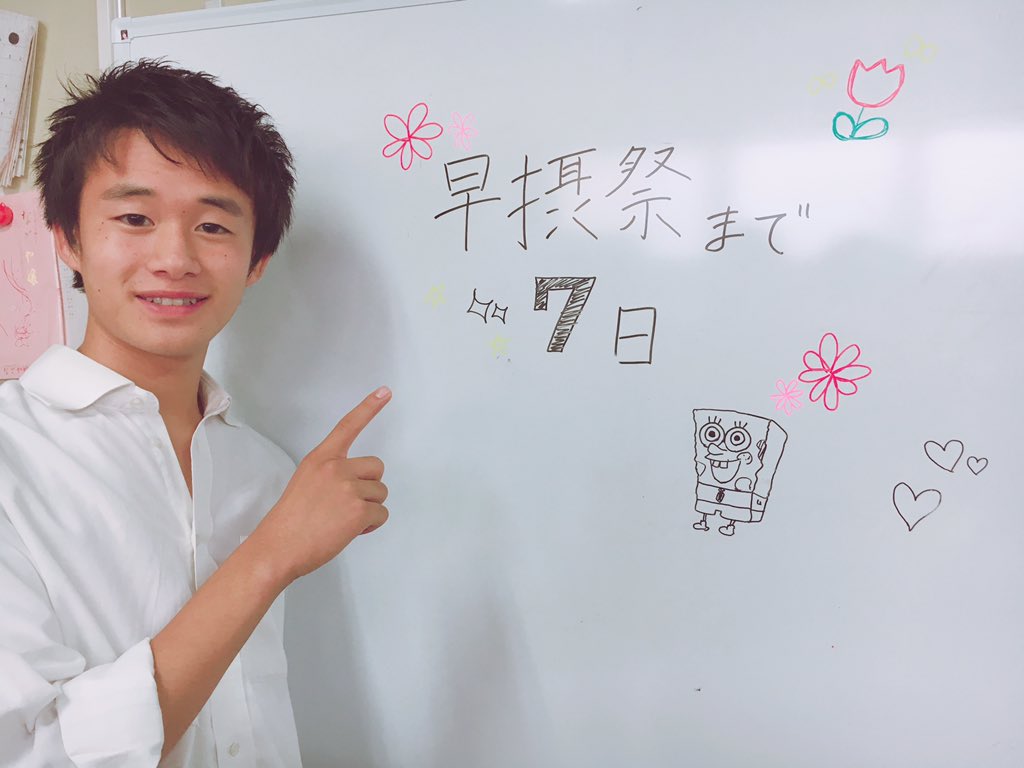 早摂祭まで
7日